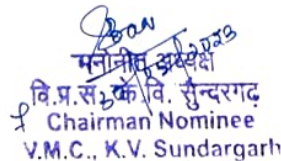 मनोनीत अध्यक्ष
वि.प्र.स. के.वि. सुन्दरगढ़
Chairman Nominee
V.M.C., K.V. Sundargarh